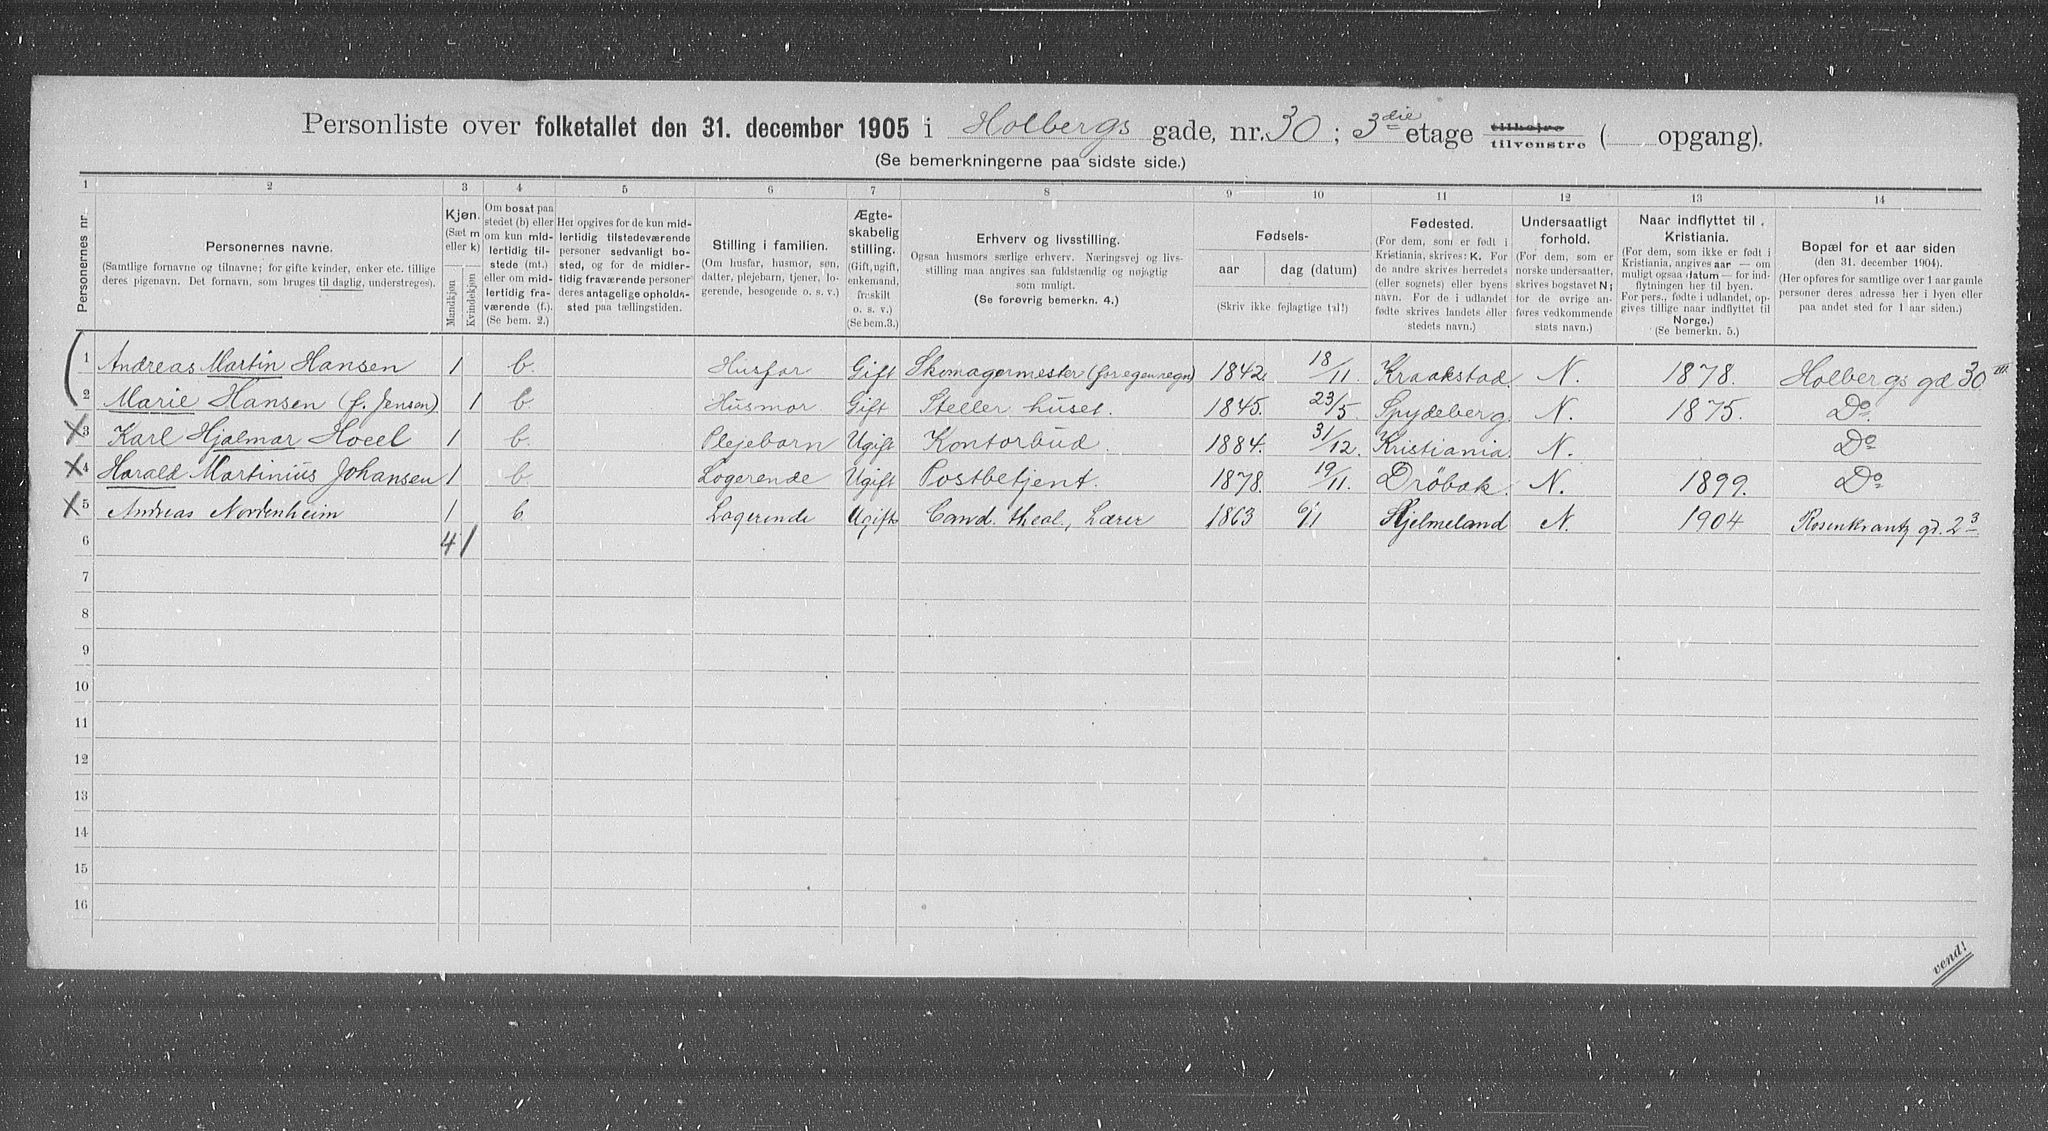 Personliste over folketallet den 31. december 1905 i Holbergs gade, nr. 30; 3die etage tilhøjre tilvenstre ( opgang).
(Se bemerkningerne paa sidste side.)
1 2 3 4 5 6 7 8 9 10 11 12 13 14
Personernes nr.
Personernes navne.
(Samtlige fornavne og tilnavne; for gifte kvinder, enker etc. tillige
deres pigenavn. Det fornavn, som bruges til daglig, understreges).
Kjøn.
(Sæt m
eller k)
Mandkjøn
Kvindekjøn
Om bosat paa
stedet (b) eller
om kun mid-
lertidig til-
stede (mt.)
eller om mid-
lertidig fra-
værende (f.).
(Se bem. 2.)
Her opgives for de kun mid-
lertidig tilstedeværende
personer sedvanligt bo-
sted, og for de midler-
tidig fraværende personer
deres antagelige opholds-
sted paa tællingstiden.
Stilling i familien.
(Om husfar, husmor, søn,
datter, plejebarn, tjener, lo-
gerende, besøgende o. s. v.)
Ægte-
skabelig
stilling.
(Gift, ugift,
enkemand,
fraskilt
o. s. v.)
(Se bem.3.)
Erhverv og livsstilling.
Ogsaa husmors særlige erhverv. Næringsvej og livs-
stilling maa angives saa fuldstændig og nøjagtig
som muligt.
(Se forøvrig bemerkn. 4.)
Fødsels-
aar dag (datum)
(Skriv ikke fejlagtige tal!)
Fødested.
(For dem, som er født i
Kristiania, skrives: K. For
de andre skrives herredets
(eller sognets) eller byens
navn. For de i udlandet
fødte skrives landets eller
stedets navn.)
Undersaatligt
forhold.
(For dem, som er
norske undersaatter,
skrives bogstavet N;
for de øvrige an-
føres vedkommende
stats navn.)
Naar indflyttet til
Kristiania.
(For dem, som ikke er født i
Kristiania, angives aar — om
muligt ogsaa datum — for ind-
flytningen her til byen.
For pers., fødte i udlandet, op-
gives tillige naar indflyttet til
Norge.)
(Se bemerkn. 5.)
Bopæl for et aar siden
(den 31. december 1904).
(Her opføres for samtlige over 1 aar gamle
personer deres adresse her i byen eller
paa andet sted for 1 aar siden.)
1 Andreas Martin Hansen 1 b. Husfar Gift Skomagermester (for egen regn) 1842. 18/11. Kraakstad. N. 1878. Holbergs gd 30 III.
2 Marie Hansen (f. Jensen) 1 b. Husmor Gift Steller huset. 1845. 23/5. Spydeberg. N. 1875. Do
3 Karl Hjalmar Hoell 1 b. Plejebarn Ugift Kontorbud. 1884. 31/12. Kristiania. N. Do
4 Harald Martinius Johansen 1 b. Logerende Ugift Postbetjent. 1878. 19/11. Dröbak. N. 1899. Do
5 Andreas Nordenheim 1 b Logerende Ugift Cand. theol., Lærer 1863 6/11 Hjelmeland N. 1904 Rosenkrantz gd. 2 3
6 4 1
7
8
9
10
11
12
13
14
15
16
vend!